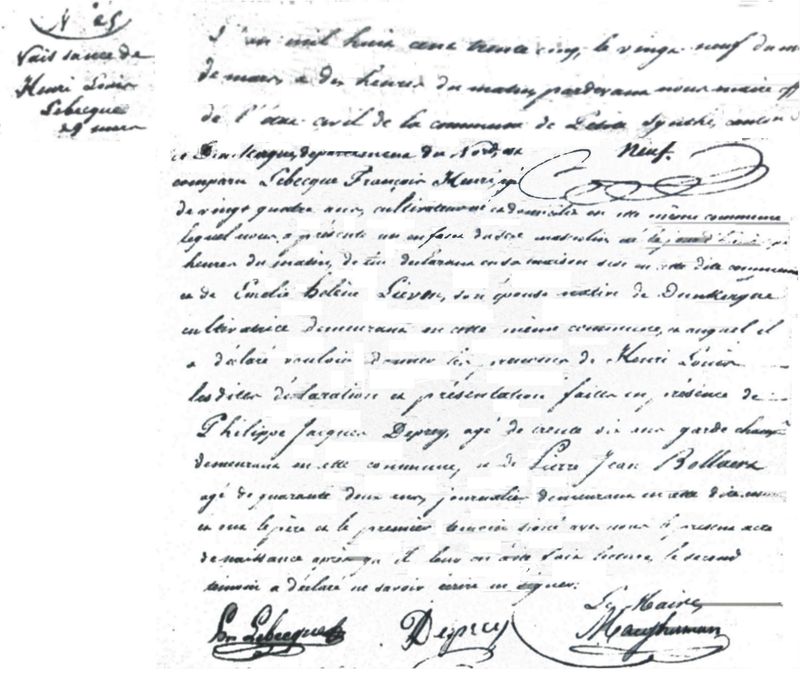 N° 25
Naissance de
Henri Louis
Lebecque
29 mars
L'an mil huit cent trente cinq, le vingt neuf du mois
de mars a dix heures du matin pardevant nous maire off
de l'état civil de la commune de Petite Synthe, canton
de Dunkerque, département du Nord, est neuf.
comparu Lebecque François Henri, agé
de vingt quatre ans, cultivateur domicilié en cette même commune
lequel nous a présenté un enfant du sexe masculin né
heures du matin, de lui déclarant en sa maison sise en cette dite commune
et de Emelie helène Liévin, son épouse native de Dunkerque
cultivatrice demeurant en cette même commune, et auquel il
a déclaré vouloir donner les prénoms de Henri Louis
les dites déclaration et présentation faites en présence de
Philippe Jacques Deprey, agé de trente six ans garde champ
demeurant en cette commune, et de Pierre Jean Bollaert
agé de quarante deux ans, journalier demeurant en cette dite
et ont le père et le premier temoin signé avec nous le présent acte
de naissance après qu'il leur en a été fait lecture, le second
temoin a déclaré ne savoir écrire ni signer.
Le Maire
Lebecque Deprey